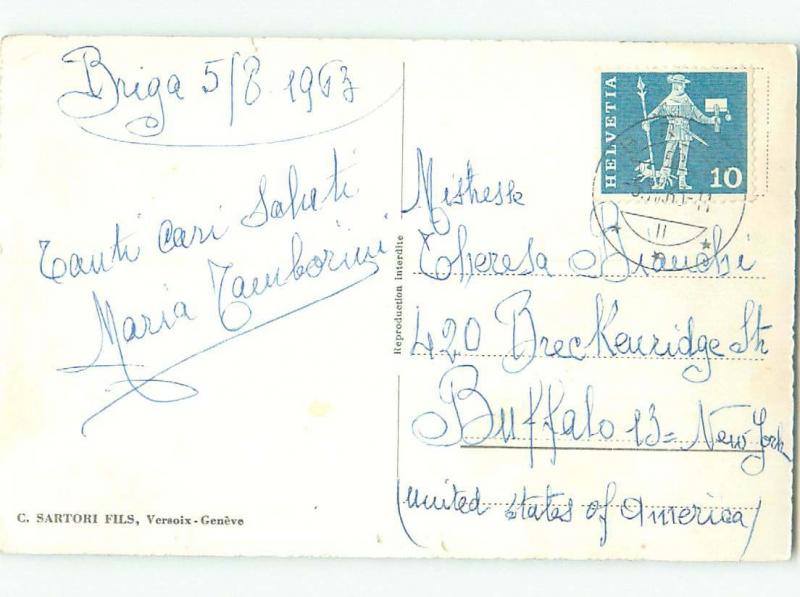 Briga 5/8 1963
Tanti cari Saluti
Maria Tamborini
C. SARTORI FILS, Versoix-Genève
Reproduction interdite
HELVETIA
10
11
Mistresse
Theresa Bianchi
420 Breckenridge Str
Buffalo 13= New York
(united states of America)